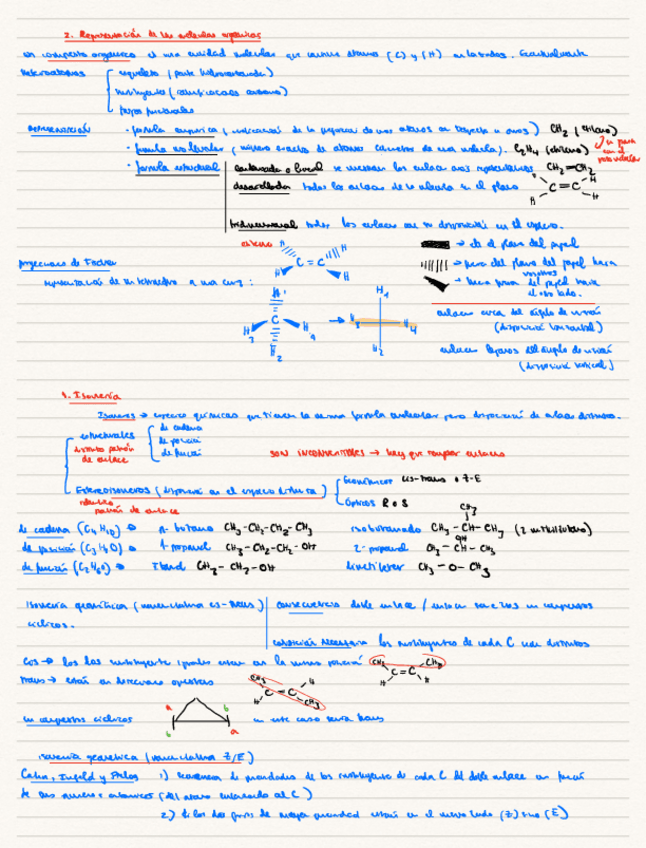 2. Representación de las moléculas orgánicas
un compuesto orgánico es una entidad molecular que contiene átomos (C) y (H) enlazados.
esqueleto (parte hidrocarbonada)
sustituyentes (ramificaciones carbono)
grupos funcionales
representación
· fórmula empírica (indicación de la proporción de unos átomos en respecto a otros) CH2 (etileno)
· fórmula molecular (número exacto de átomos de una molécula). C2H4 (etileno)
· fórmula estructural
condensada o lineal se muestran los enlaces más representativos CH2=CH2
desarrollada todos los enlaces de la molécula en el plano
H C=C H H
tridimensional todos los enlaces con su disposición en el espacio.
etileno
H H C=C H H
→ en el plano del papel
→ fuera del plano del papel hacia nosotros
→ fuera del plano del papel hacia el otro lado.
Proyecciones de Fischer
representación de un tetraedro a una cruz:
H1 C H3 H4 H2 → H1 H3 H4 H2
enlaces cerca del ángulo de visión
(disposición horizontal)
enlaces lejanos del ángulo de visión
(disposición vertical)
1. Isomería
Isómeros → especies químicas que tienen la misma fórmula molecular pero disposición de enlaces distintos.
estructurales
distinto patrón de enlace
de cadena
de posición
de función
SON INCONVERTIBLES → hay que romper enlaces
Estereoisómeros (disposición en el espacio distinta)
mismo patrón de enlace
Geométricos cis-trans o Z-E
Ópticos R o S
de cadena (C4H10) → n-butano CH3-CH2-CH2-CH3 isobutano CH3-CH-CH3 CH3
de posición (C3H8O) → 1-propanol CH3-CH2-CH2-OH 2-propanol CH3-CH-CH3 OH
de función (C2H6O) → Etanol CH3-CH2-OH dimetiléter CH3-O-CH3
Isomería geométrica (nomenclatura cis-trans) consecuencia doble enlace / enlace sencillos en compuestos
cíclicos.
condición necesaria los sustituyentes de cada C sean distintos
Cis → los dos sustituyentes iguales están en la misma posición CH3 CH3 C=C H H
trans → están en direcciones opuestas CH3 H C=C H CH3
en compuestos cíclicos a b b a en este caso sería trans
isomería geométrica (nomenclatura Z/E)
Cahn, Ingold y Prelog 1) secuencia de prioridades de los sustituyentes de cada C del doble enlace en función
de sus números atómicos (del átomo enlazado al C)
2) si los dos grupos de mayor prioridad están en el mismo lado (Z) sino (E)